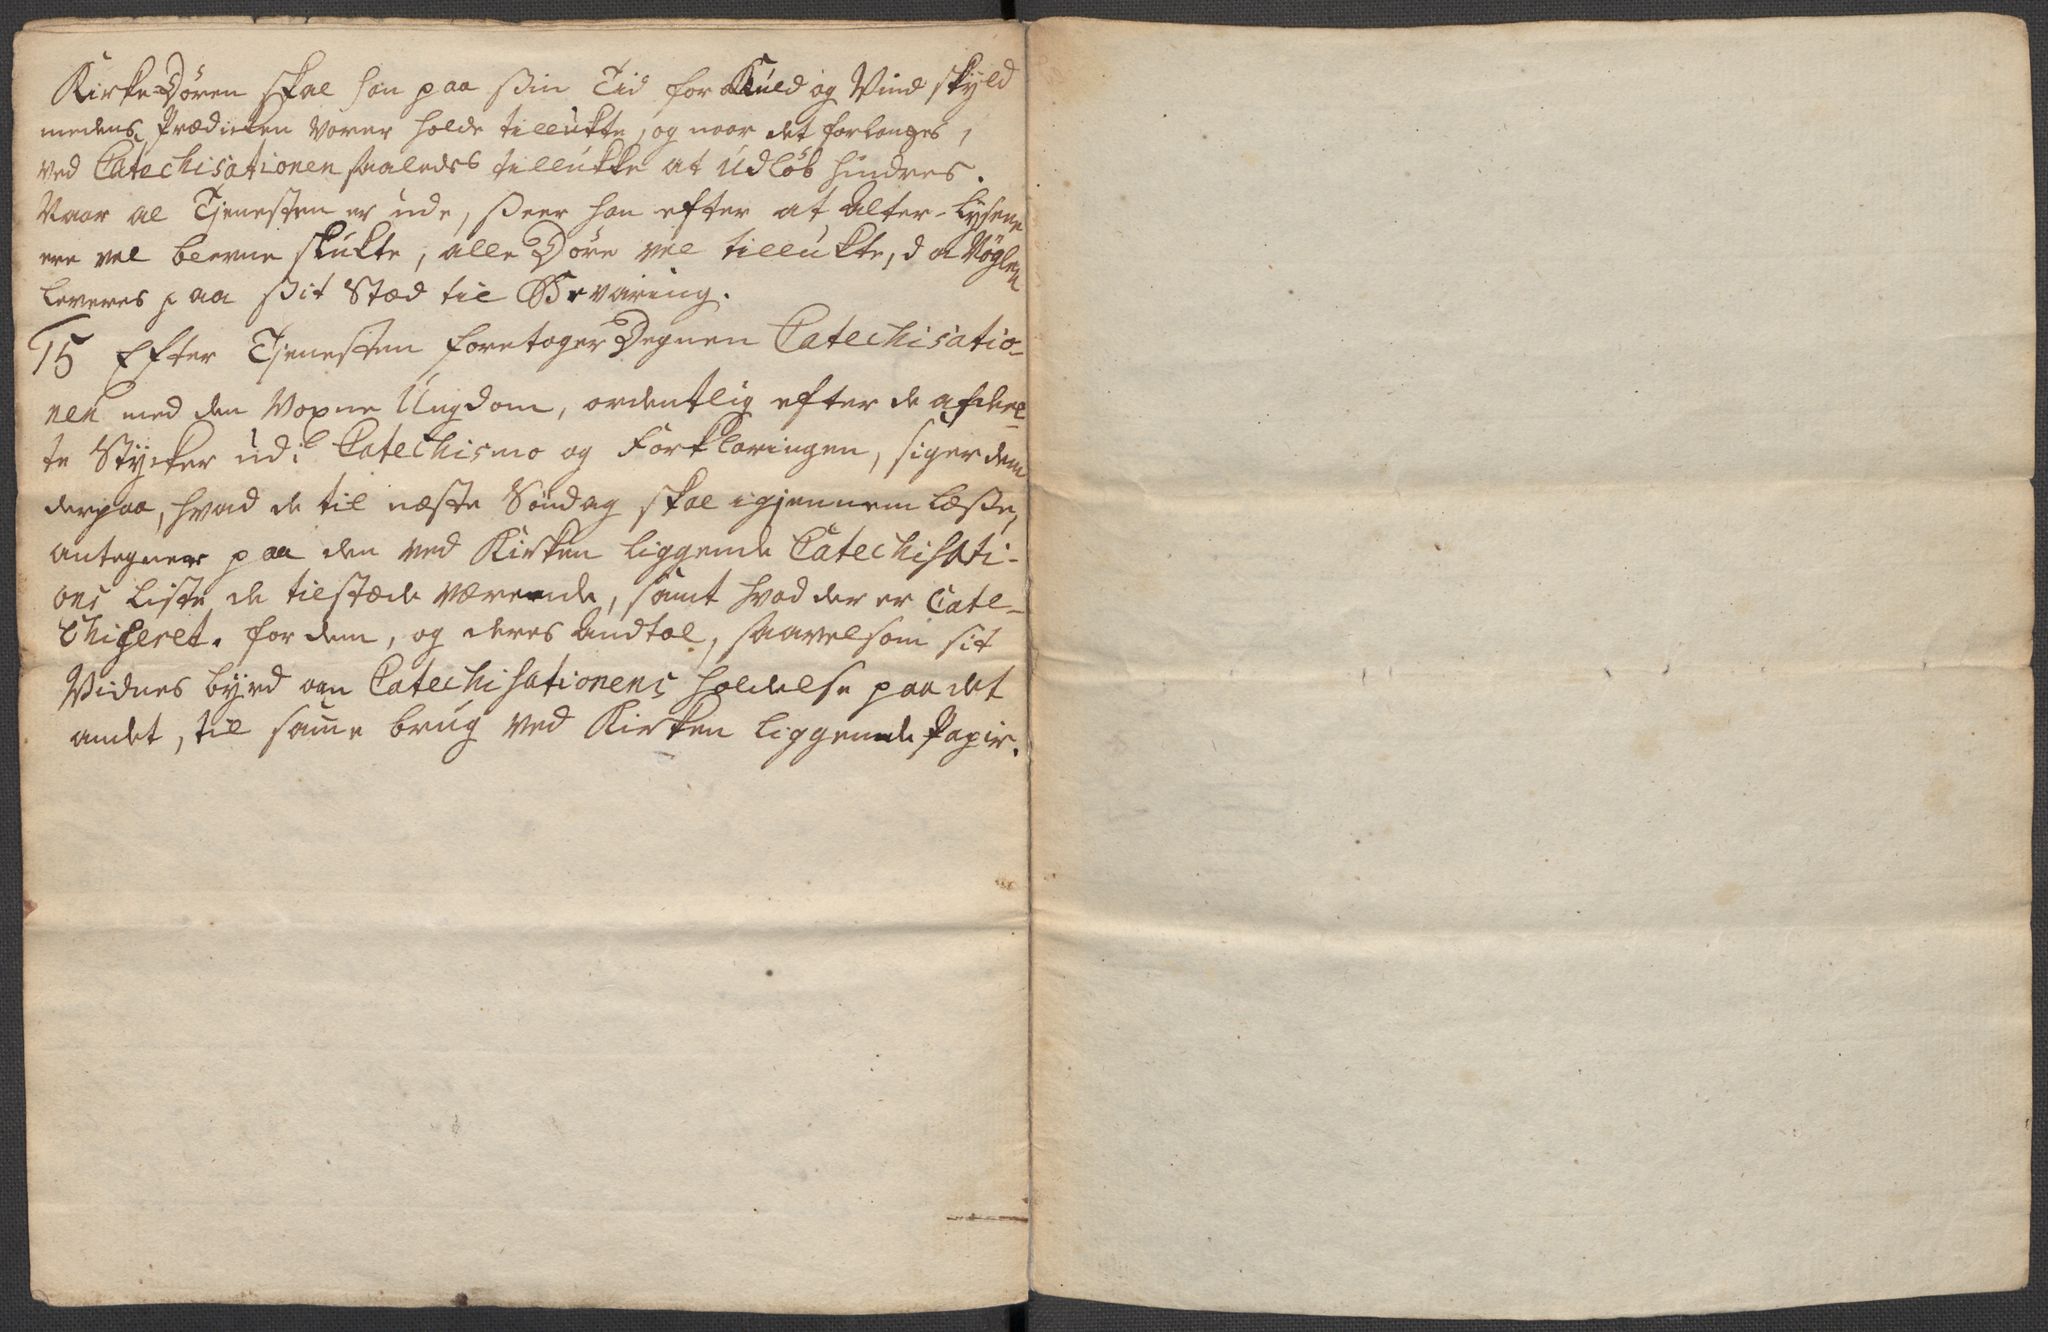 Kirke-Dören skal han paa ßin Tid for Kuld og Vind skyld
medens Prædicken varer holde tillukte, og naar det forlanges,
ved Catechisationen saaledes tillukke at Udløb hindres.
Naar al Tjenesten er ude, ßeer han efter at Alter-Lysene
ere vel blevne slukte, alle Döre vel tillukte, da Nöglen
leveres paa ßit Stæd til Bevaring.
15 Efter Tjenesten foretager Degnen Catechisatio-
nen med den Voxne Ungdom, ordentlig efter de afdeel-
te Stycker udi Catechismo og Forklaringen, siger dem
derpaa, hvad de til næste Söndag skal igjennem læße,
antegner paa den ved Kirken liggende Catechisati-
ons Liste de tilstæde værende, samt hvad der er Cate-
chiseret for dem, og deres Andtal, saavelsom sit
Vidnes byrd om Catechisationens holdelse paa det
andet, til sam̄e brug ved Kirken liggende Papir.